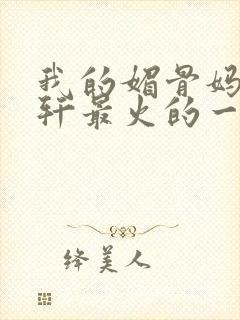 我的媚骨妈
轩最火的一
绛美人